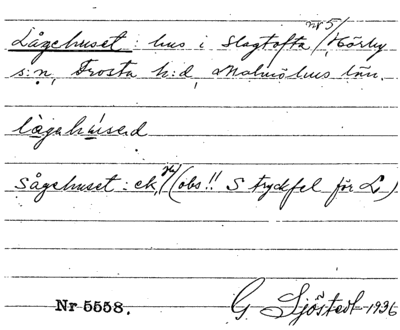 Lågehuset : hus i Slagtofta nr 5/, Hörby
s:n, Frosta h:d, Malmöhus län.
lægahúsed
Sågehuset : ek. /(obs!! S tryckfel för L)
Nr 5558. G Sjöstedt 1936